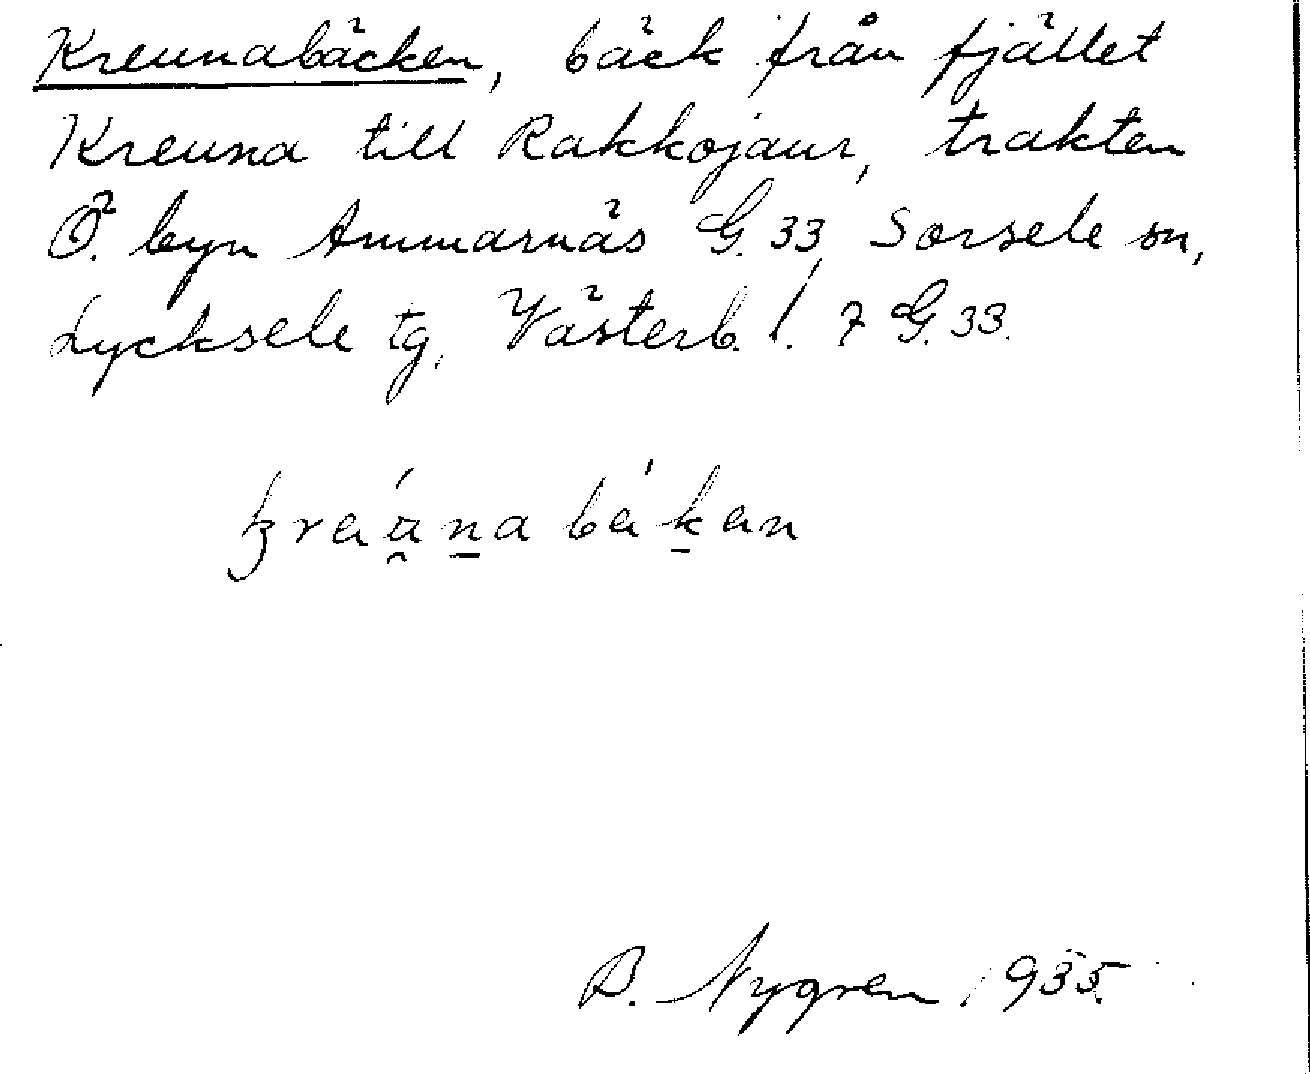 Kreunabäcken, bäck från fjället
Kreuna till Rakkojaur, trakten
Ö. byn Ammarnäs G. 33, Sorsele sn,
Lycksele tg, Västerb. l. 7 G. 33.
B. Nygren 1935.